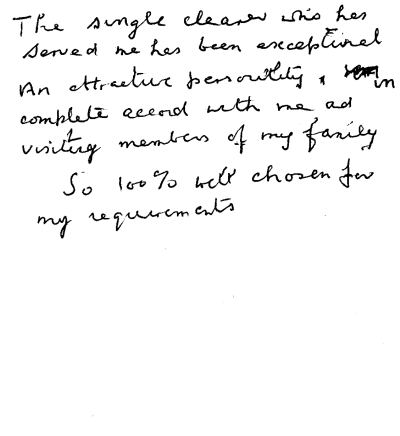 The single cleaner who has
served me has been exceptional
An attractive personality, in
complete accord with me ad
visiting members of my family
So 100% well chosen for
my requirements